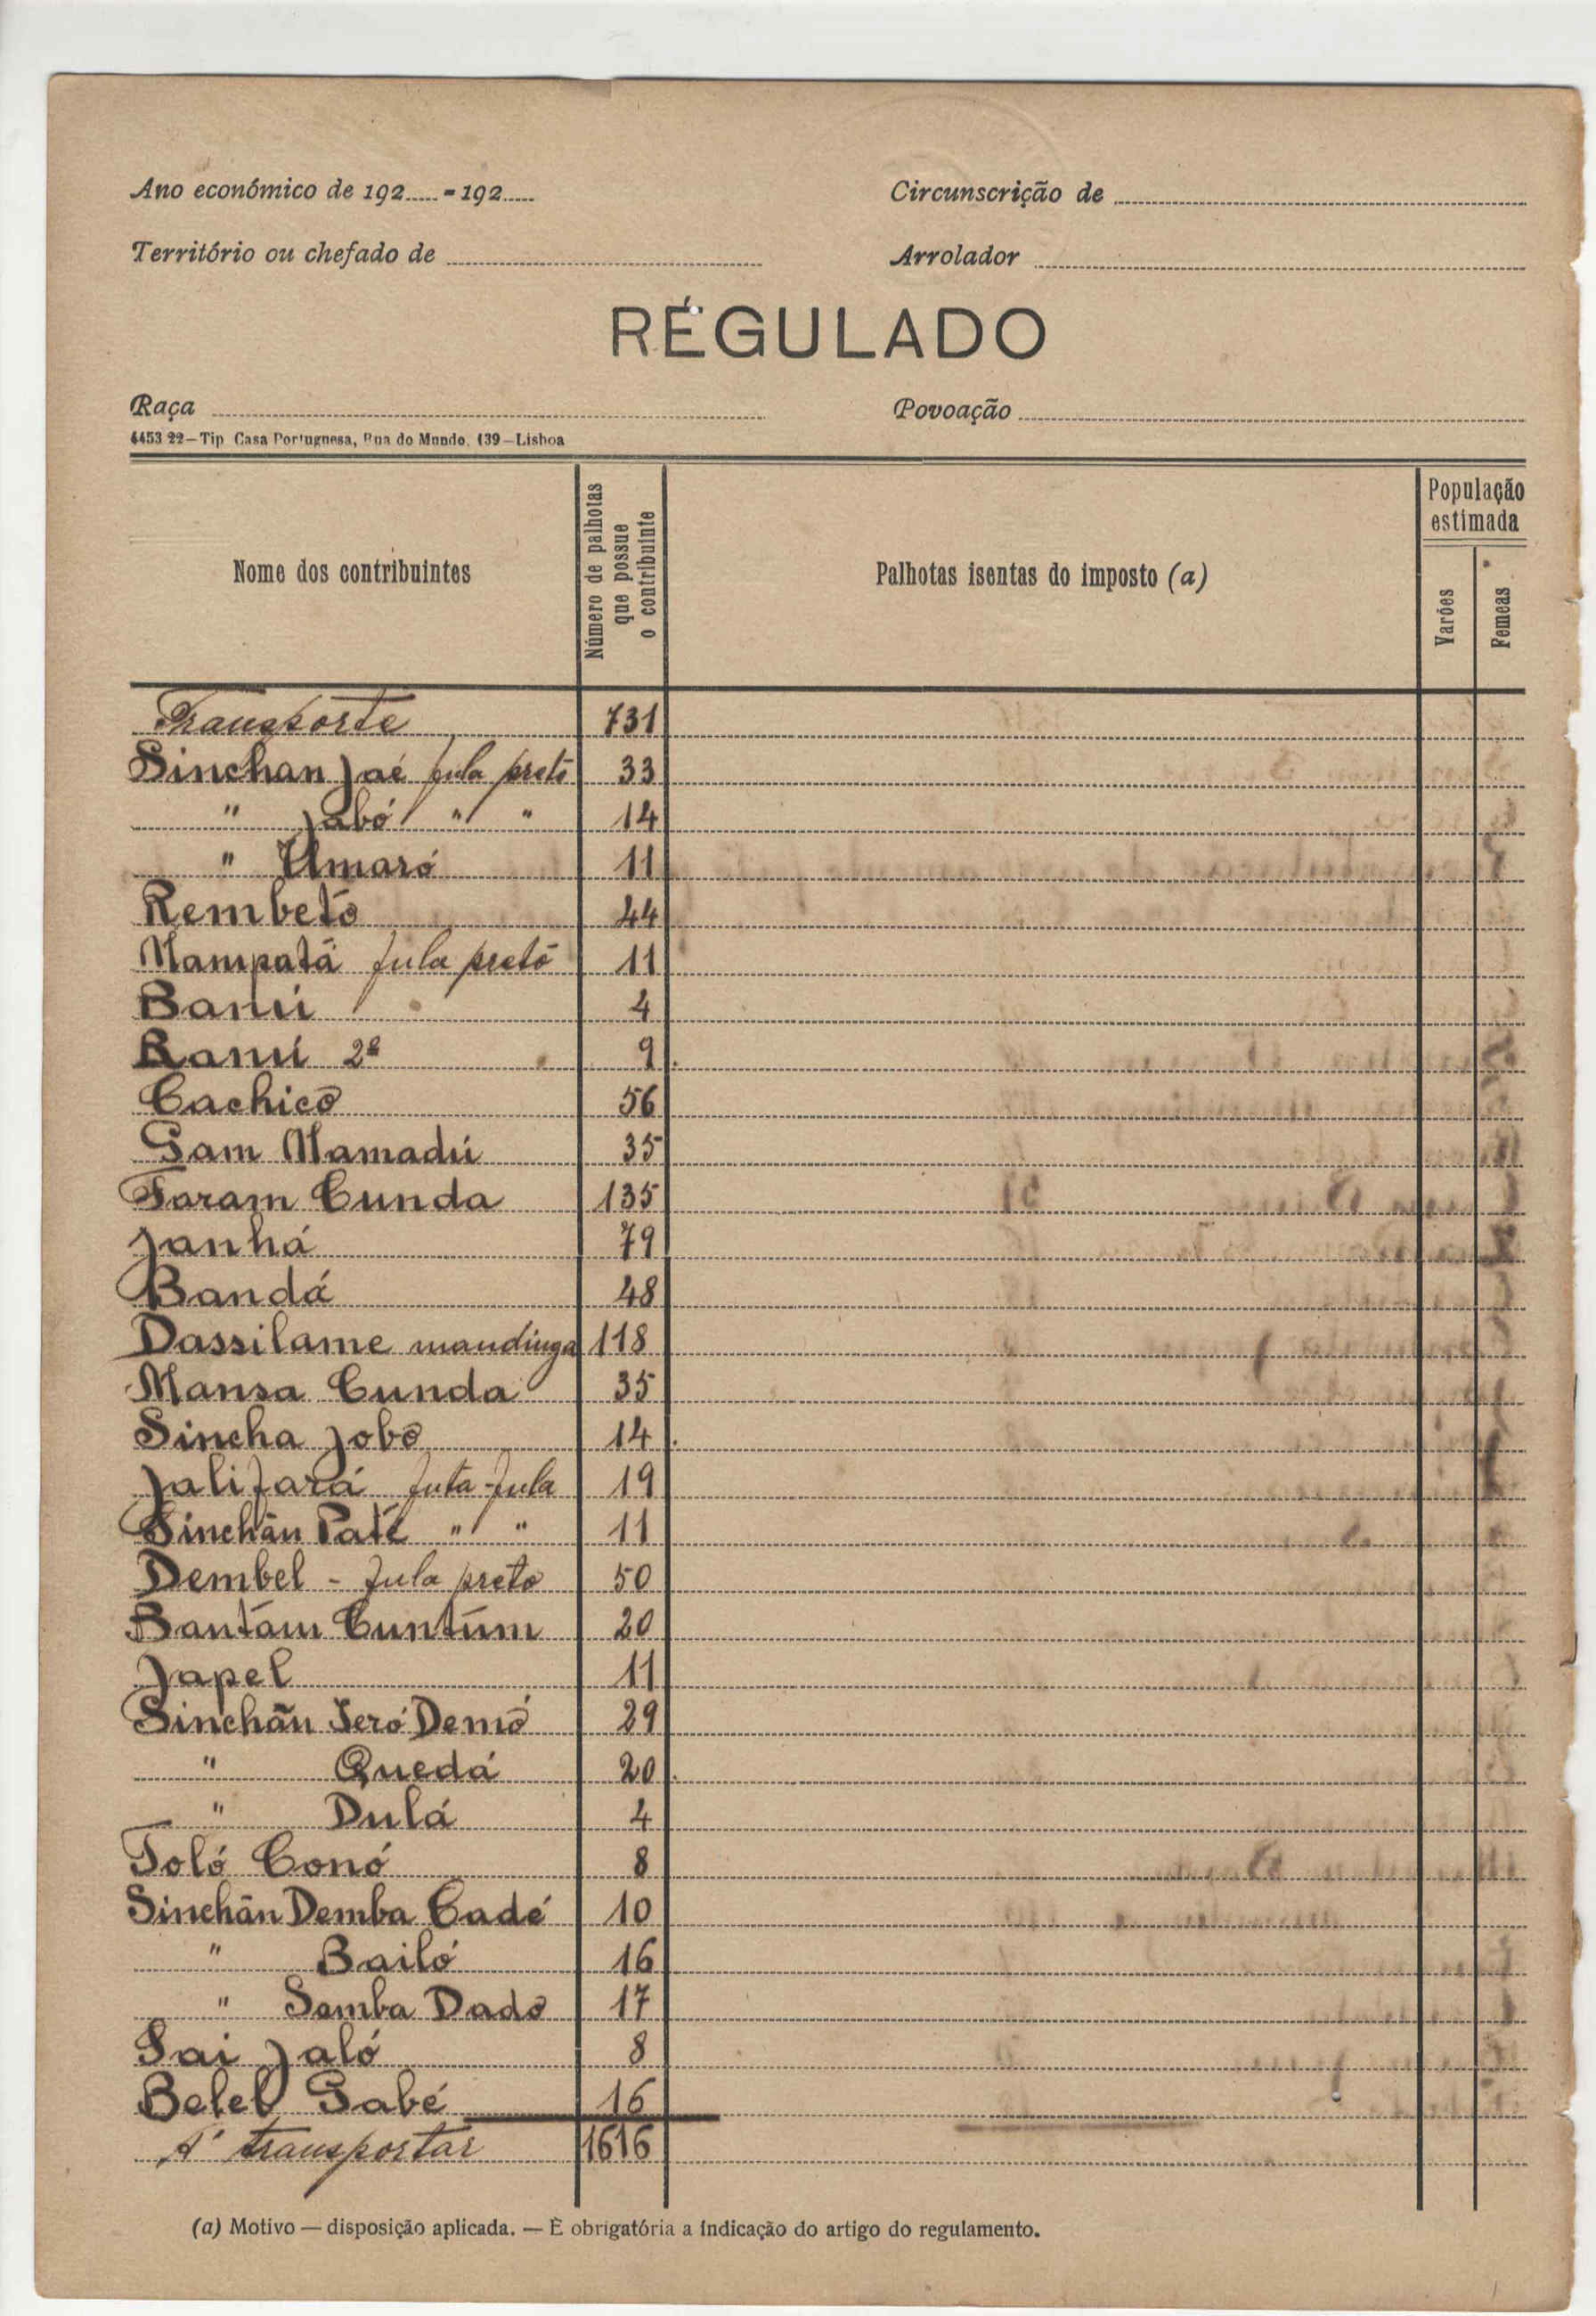 Ano económico de 192.....-192.....
Circunscrição de
Território ou chefado de
Arrolador
RÉGULADO
Raça
Povoação
4453 22—Tip Casa Portuguesa, Rua do Mundo, 139—Lisboa
Nome dos contribuintes
Número de palhotas que possue o contribuinte
Palhotas isentas do imposto (a)
População estimada
Varões
Femeas
Transporte 731
Sinchan Jaé fula preto 33
" Jabó " " 14
" Umaró 11
Rembetó 44
Mampatá fula preto 11
Banú 4
Banú 2ª 9
Cachicó 56
Gam Mamadú 35
Faram Cunda 135
Janhá 79
Bandá 48
Dassilame mandinga 118
Mansa Cunda 35
Sincha Jobó 14
Jalifará futa-fula 19
Sinchãn Paté " " 11
Dembel - fula preto 50
Bantám Cuntúm 20
Japel 11
Sinchãn Seró Demó 29
" Quedá 20
" Dulá 4
Toló Conó 8
Sinchãn Demba Cadé 10
" Bailó 16
" Samba Dadó 17
Sai Jaló 8
Belel Gabé 16
A' transportar 1616
(a) Motivo — disposição aplicada. — É obrigatória a indicação do artigo do regulamento.